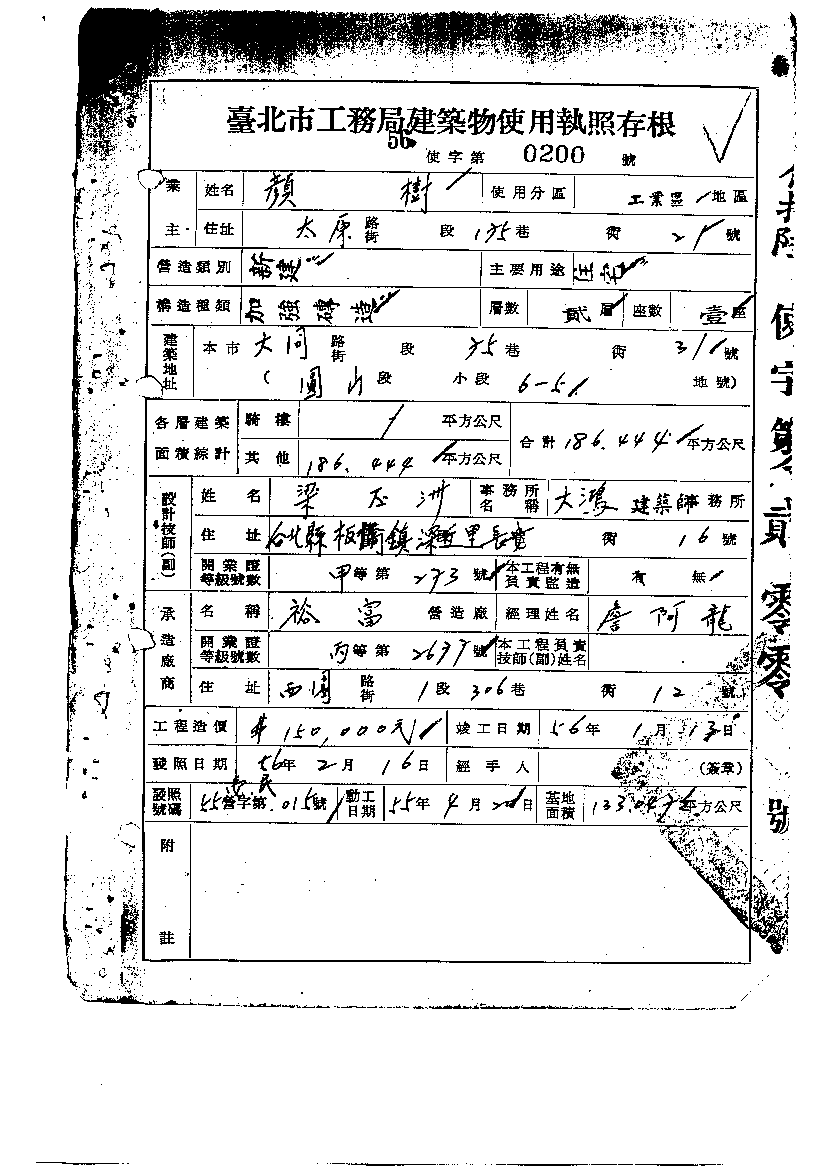 臺北市工務局建築物使用執照存根
56 使字第 0200 號
業主 姓名 顏 樹 使用分區 工業區 地區
住址 太原 路街 段 175巷 街 21 號
營造類別 新建 主要用途 住宅
構造種類 加強磚造 層數 貳層 座數 壹座
建築地址 本市 大同 路街 段 75巷 街 31 號
( 圓山 段 小段 6-51 地號)
各層建築面積綜計 騎樓 / 平方公尺 合計 186.444 平方公尺
其他 186.444 平方公尺
設計技師(副) 姓名 梁 洲 事務所名稱 大鴻 建築師事務所
住址 台北縣板橋鎮 里長 街 16 號
開業證等級號數 甲等第 273 號 本工程有無負責監造 有 無
承造廠商 名稱 裕富 營造廠 經理姓名 詹阿龍
開業證等級號數 丙等第 2637 號 本工程負責技師(副)姓名
住址 西園 路街 1段 306巷 街 12 號
工程造價 150,000元 竣工日期 56年 1月 13日
發照日期 56年 2月 16日 經手人 (簽章)
發照號碼 55營字第 015號 動工日期 55年 4月 20日 基地面積 平方公尺
附註
使字第零貳零零號